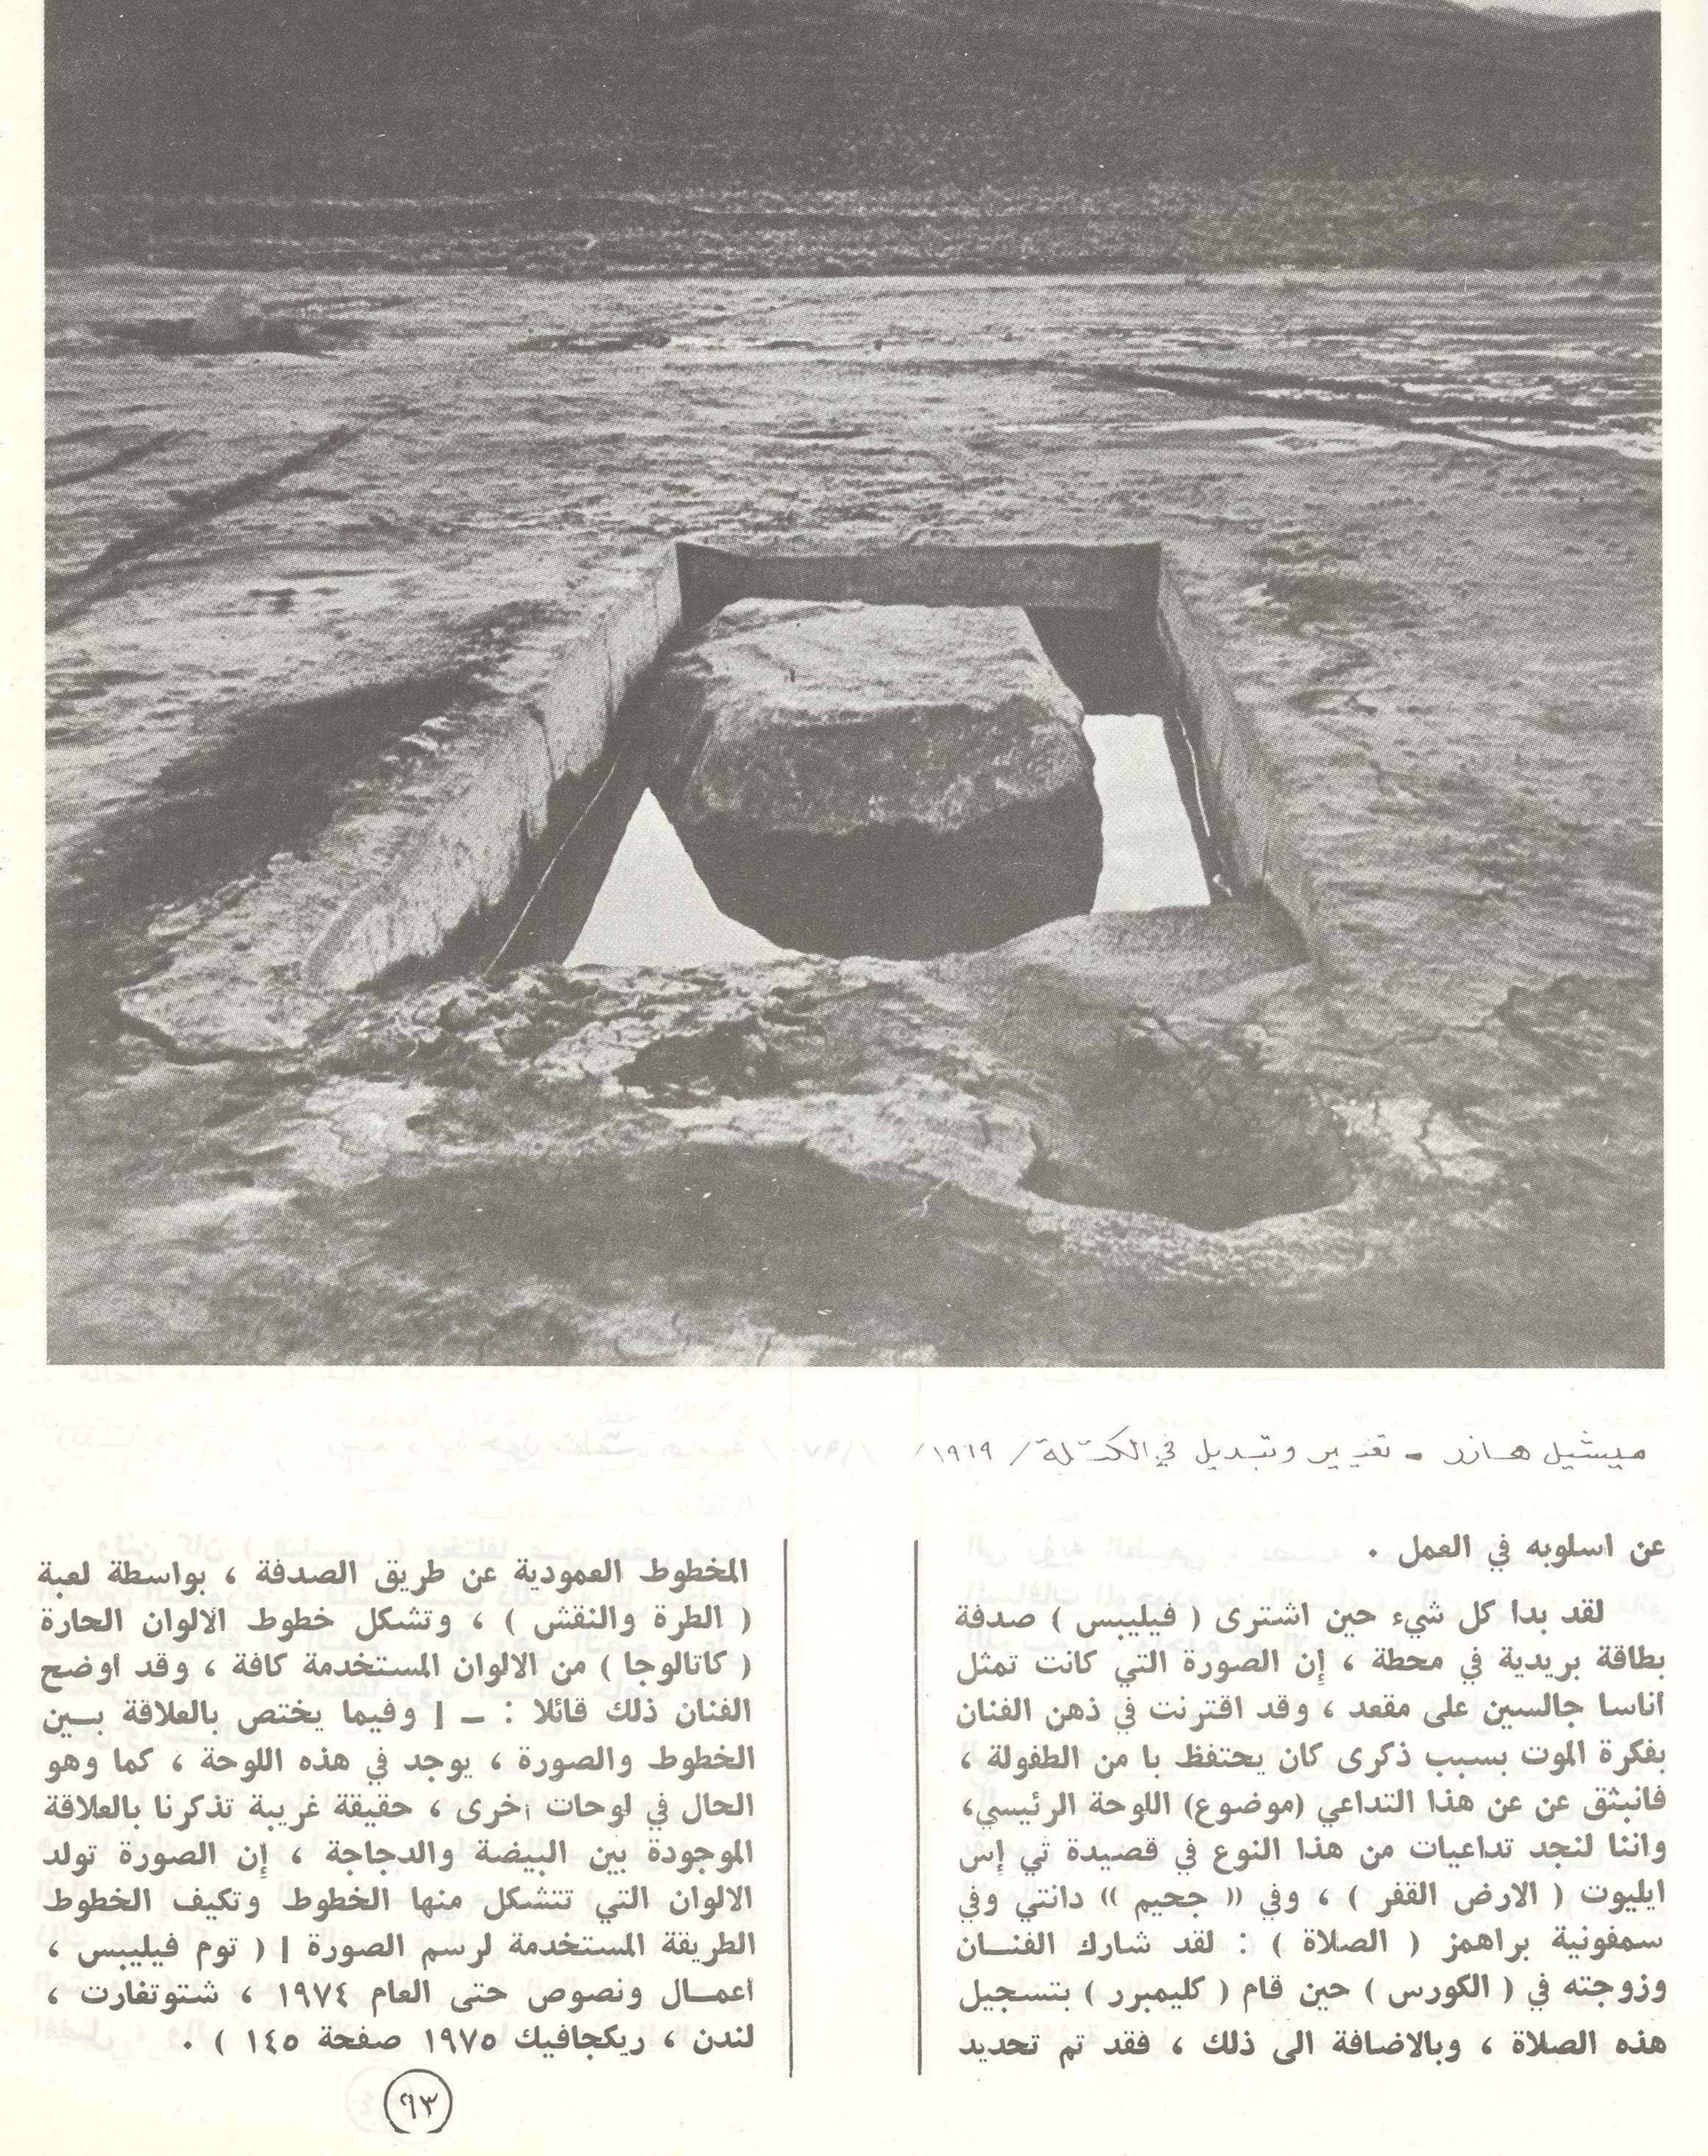 ميشيل هازر - تغيير وتبديل في الكتلة / ١٩٦٩ /
عن اسلوبه في العمل .
لقد بدا كل شيء حين اشترى ( فيليبس ) صدفة
بطاقة بريدية في محطة ، إن الصورة التي كانت تمثل
أناسا جالسين على مقعد ، وقد اقترنت في ذهن الفنان
بفكرة الموت بسبب ذكرى كان يحتفظ با من الطفولة ،
فانبثق عن عن هذا التداعي (موضوع) اللوحة الرئيسي،
واننا لنجد تداعيات من هذا النوع في قصيدة تي إس
ايليوت ( الارض القفر ) ، وفي (( جحيم )) دانتي وفي
سمفونية براهمز ( الصلاة ) : لقد شارك الفنـــان
وزوجته في ( الكورس ) حين قام ( كليمبرر ) بتسجيل
هذه الصلاة ، وبالاضافة الى ذلك ، فقد تم تحديد
المخطوط العمودية عن طريق الصدفة ، بواسطة لعبة
( الطرة والنقش ) ، وتشكل خطوط الالوان الحارة
( كاتالوجا ) من الالوان المستخدمة كافة ، وقد أوضح
الفنان ذلك قائلا : ـ [ وفيما يختص بالعلاقة بـــين
الخطوط والصورة ، يوجد في هذه اللوحة ، كما وهو
الحال في لوحات أخرى ، حقيقة غريبة تذكرنا بالعلاقة
الموجودة بين البيضة والدجاجة ، إن الصورة تولد
الالوان التي تتشكل منها الخطوط وتكيف الخطوط
الطريقة المستخدمة لرسم الصورة ] ( توم فيليبس ،
أعمـــال ونصوص حتى العام ١٩٧٤ ، شتوتغارت ،
لندن ، ريكجافيك ١٩٧٥ صفحة ١٤٥ ) .
٩٣